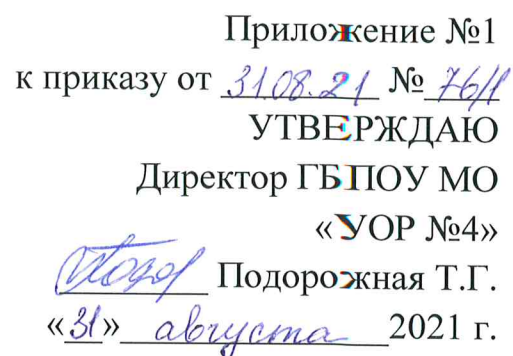 Приложение №1
к приказу от 31.08.21 № 76/1
УТВЕРЖДАЮ
Директор ГБПОУ МО
«УОР №4»
Подорожная Т.Г.
«31» августа 2021 г.